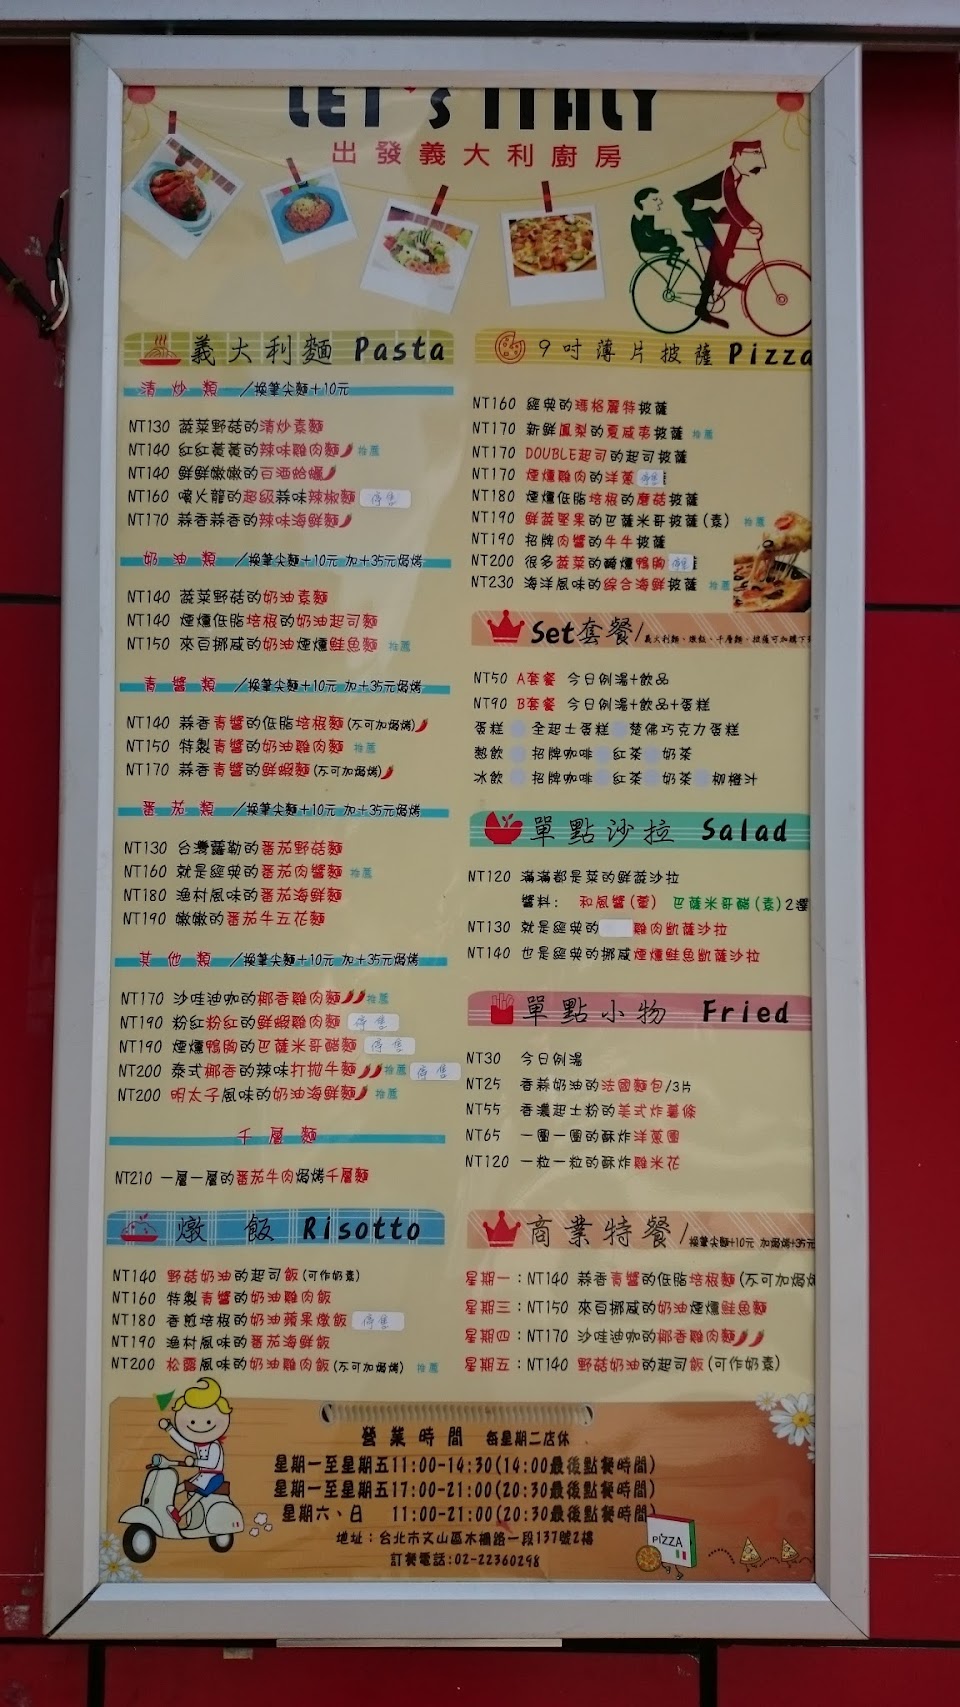 LET'S ITALY
出發義大利廚房
義大利麵 Pasta
清炒類 /換筆尖麵+10元
NT130 蔬菜野菇的清炒素麵
NT140 紅紅黃黃的辣味雞肉麵 推薦
NT140 鮮鮮嫩嫩的白酒蛤蠣
NT160 噴火龍的超級蒜味辣椒麵 停售
NT170 蒜香蒜香的辣味海鮮麵
奶油類 /換筆尖麵+10元 加+35元焗烤
NT140 蔬菜野菇的奶油素麵
NT140 煙燻低脂培根的奶油起司麵
NT150 來自挪威的奶油煙燻鮭魚麵 推薦
青醬類 /換筆尖麵+10元 加+35元焗烤
NT140 蒜香青醬的低脂培根麵(不可加焗烤)
NT150 特製青醬的奶油雞肉麵 推薦
NT170 蒜香青醬的鮮蝦麵(不可加焗烤)
番茄類 /換筆尖麵+10元 加+35元焗烤
NT130 台灣蘿勒的番茄野菇麵
NT160 就是經典的番茄肉醬麵 推薦
NT180 漁村風味的番茄海鮮麵
NT190 嫩嫩的番茄牛五花麵
其他類 /換筆尖麵+10元 加+35元焗烤
NT170 沙哇迪咖的椰香雞肉麵 推薦
NT190 粉紅粉紅的鮮蝦雞肉麵 停售
NT190 煙燻鴨胸的巴薩米哥醋麵 停售
NT200 泰式椰香的辣味打拋牛麵 推薦 停售
NT200 明太子風味的奶油海鮮麵 推薦
千層麵
NT210 一層一層的番茄牛肉焗烤千層麵
燉飯 Risotto
NT140 野菇奶油的起司飯(可作奶素)
NT160 特製青醬的奶油雞肉飯
NT180 香煎培根的奶油蘋果燉飯 停售
NT190 漁村風味的番茄海鮮飯
NT200 松露風味的奶油雞肉飯(不可加焗烤) 推薦
9吋薄片披薩 Pizza
NT160 經典的瑪格麗特披薩
NT170 新鮮鳳梨的夏威夷披薩 推薦
NT170 DOUBLE起司的起司披薩
NT170 煙燻雞肉的洋蔥 停售
NT180 煙燻低脂培根的蘑菇披薩
NT190 鮮蔬堅果的巴薩米哥披薩(素) 推薦
NT190 招牌肉醬的牛牛披薩
NT200 很多蔬菜的煙燻鴨胸 停售
NT230 海洋風味的綜合海鮮披薩 推薦
Set套餐/義大利麵、燉飯、千層麵、披薩可加購下列
NT50 A套餐 今日例湯+飲品
NT90 B套餐 今日例湯+飲品+蛋糕
蛋糕 全起士蛋糕 楚佛巧克力蛋糕
熱飲 招牌咖啡 紅茶 奶茶
冰飲 招牌咖啡 紅茶 奶茶 柳橙汁
單點沙拉 Salad
NT120 滿滿都是菜的鮮蔬沙拉
醬料: 和風醬(葷) 巴薩米哥醋(素)2選
NT130 就是經典的 雞肉凱薩沙拉
NT140 也是經典的挪威煙燻鮭魚凱薩沙拉
單點小物 Fried
NT30 今日例湯
NT25 香蒜奶油的法國麵包/3片
NT55 香濃起士粉的美式炸薯條
NT65 一圈一圈的酥炸洋蔥圈
NT120 一粒一粒的酥炸雞米花
商業特餐/換筆尖麵+10元 加焗烤+35元
星期一:NT140 蒜香青醬的低脂培根麵(不可加焗烤
星期三:NT150 來自挪威的奶油煙燻鮭魚麵
星期四:NT170 沙哇迪咖的椰香雞肉麵
星期五:NT140 野菇奶油的起司飯(可作奶素)
營業時間 每星期二店休
星期一至星期五11:00-14:30(14:00最後點餐時間)
星期一至星期五17:00-21:00(20:30最後點餐時間)
星期六、日 11:00-21:00(20:30最後點餐時間)
地址:台北市文山區木柵路一段137號2樓
訂餐電話:02-22360298
PIZZA